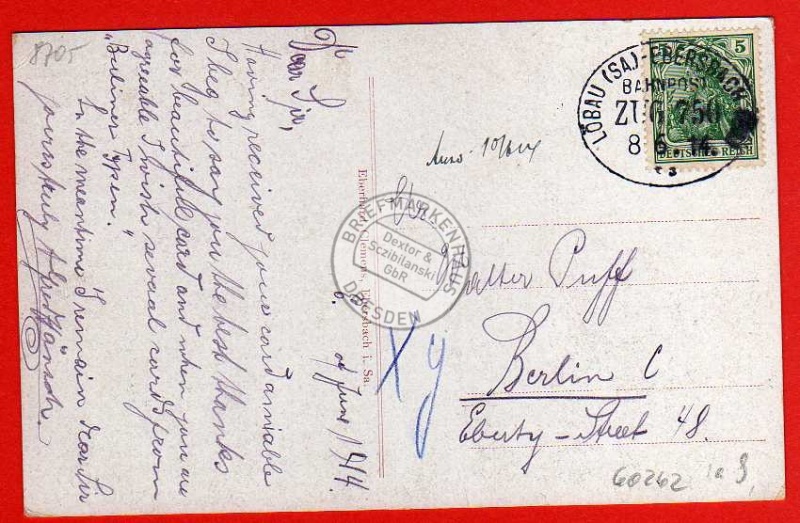 8705
6. of June 1914.
Dear Sir,
Having received your card amiable
I beg to say you the best thanks
for beautiful card and when you are
agreeable I wish several cards from
"Berliner Typen."
In the meantime I remain dear Sir
yours truly Alfred Jänsch.
Eberhard Clemens, Ebersbach i. Sa.
BRIEFMARKENHAUS
Dexter &
Sczibilanski
GbR
DRESDEN
LÖBAU (SA)-EBERSBACH
BAHNPOST
ZUG 750
8 6 14
5
DEUTSCHES REICH
Walter Puff
Berlin C
Eberty-Street 48.
60262